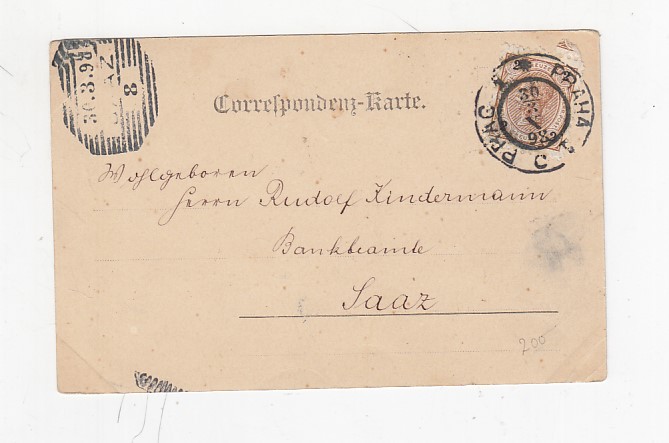 30.3.98
SAAZ
8
PRAG 1 * PRAHA 1
30
3
98
Correspondenz-Karte.
Wohlgeboren
Herrn Rudolf Kindermann
Bankbeamte
Saaz
200